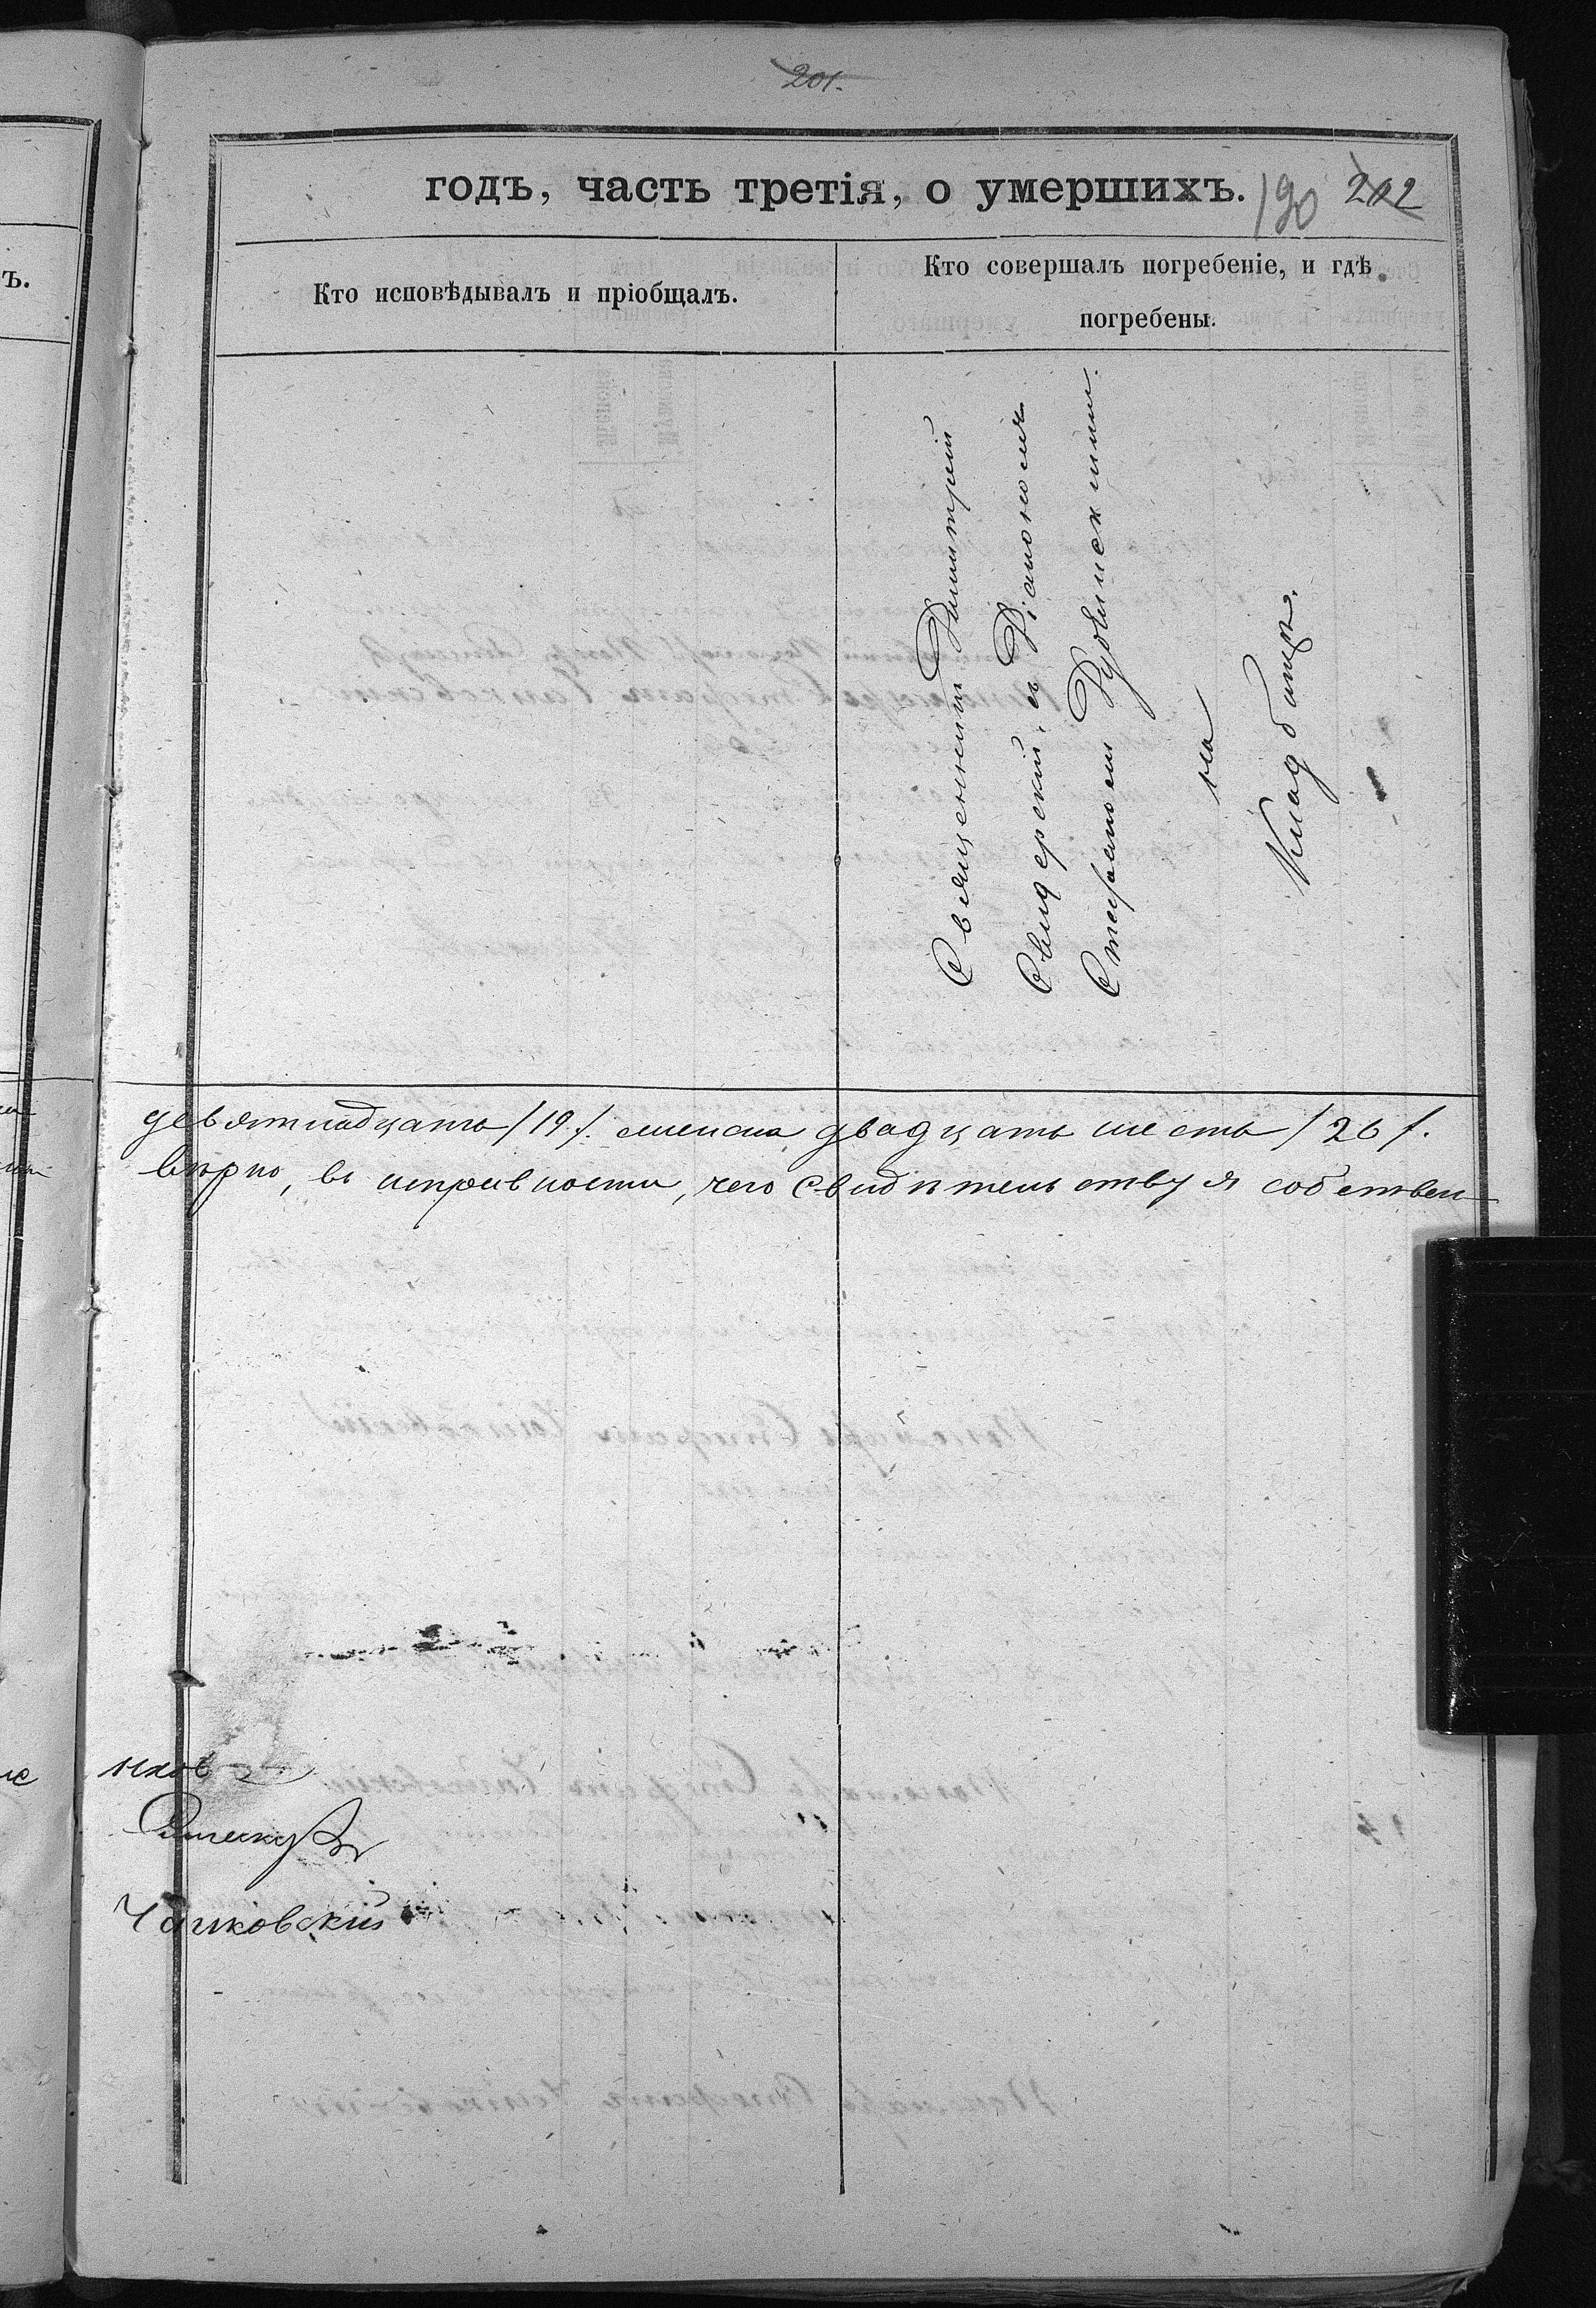 201.
годъ, часть третія, о умершихъ.
190 202
Кто исповѣдывалъ и пріобщалъ.
Кто совершалъ погребеніе, и гдѣ
погребены.
Священникъ Димитрій
Свидерскій, съ Діакономъ
Стефаномъ Рудвинскимъ.
на
Кладбищѣ.
девятнадцать /19/. женска двадцать шесть /26/.
вѣрно, въ исправности, чего свидѣтельствуя собствен-
Чайковскій
ъ.